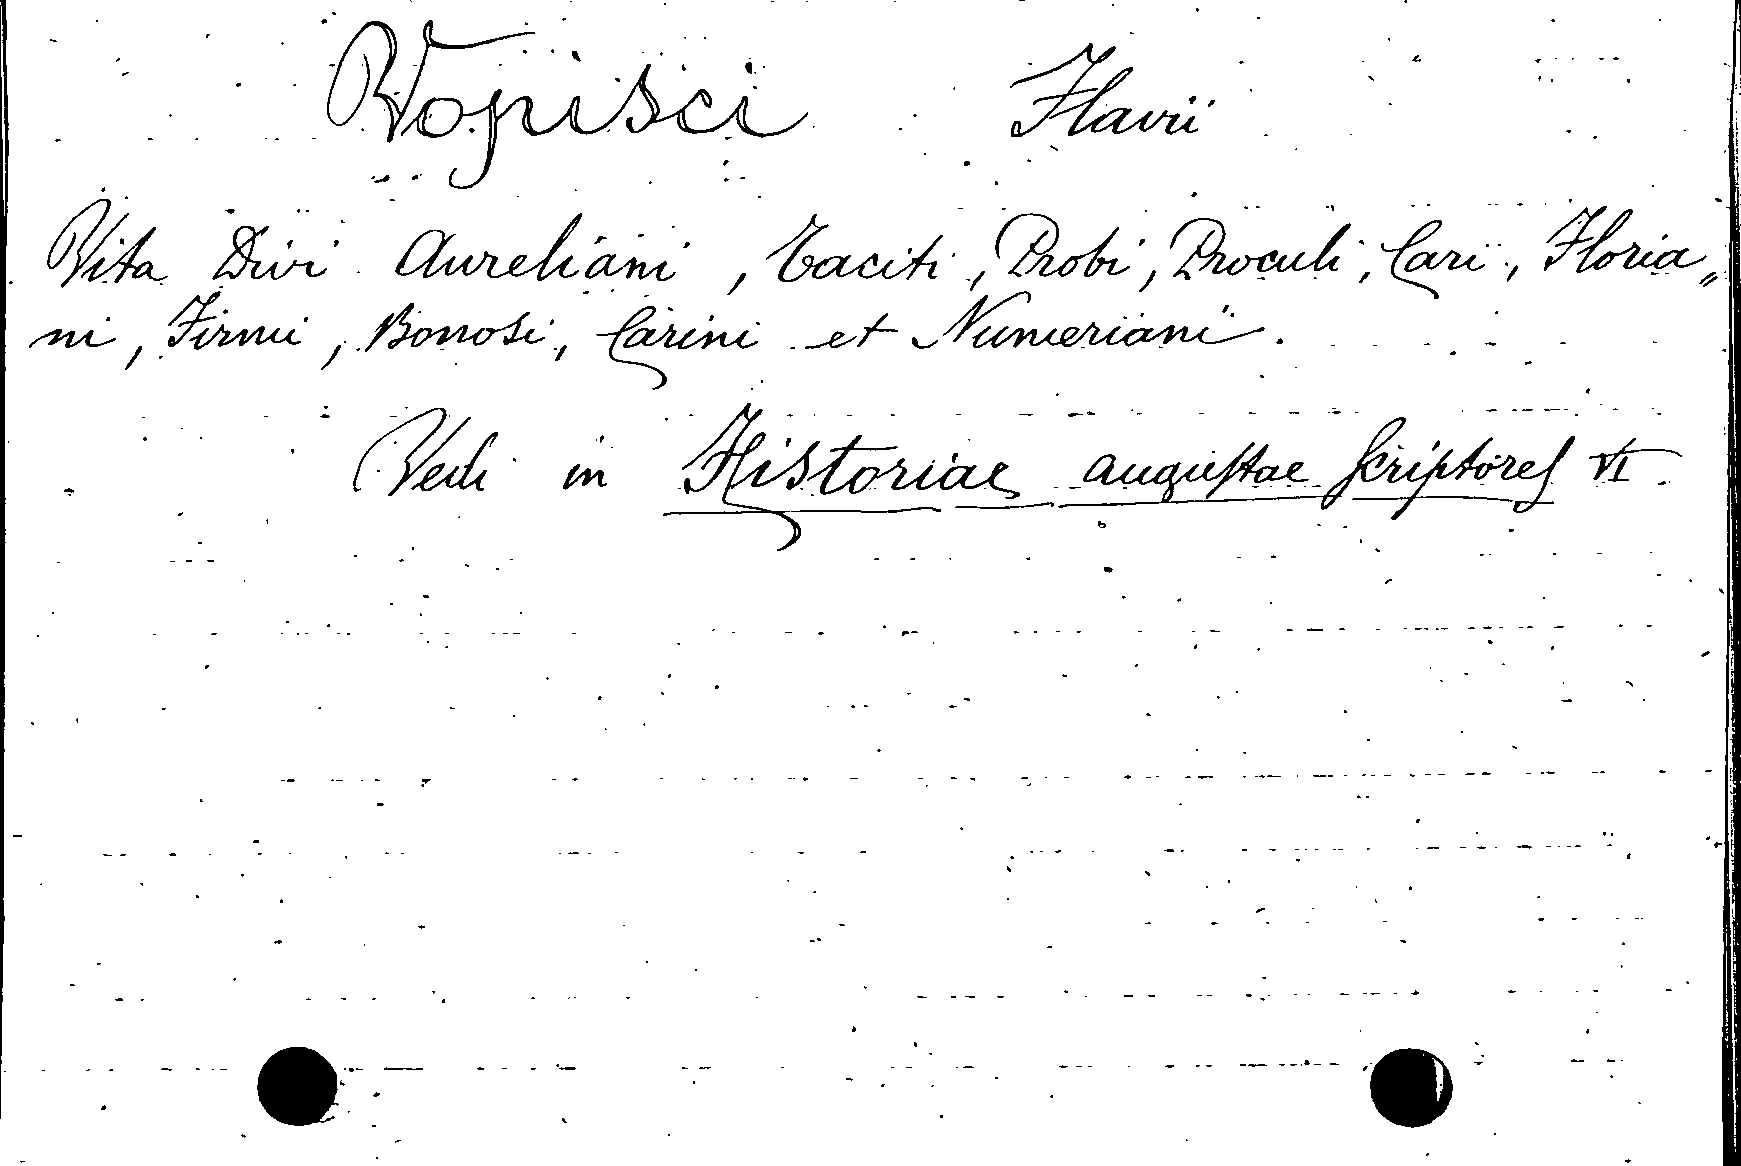 Vopisci Flavii
Vita Divi Aureliani, Taciti, Probi, Proculi, Cari, Floria„
ni, Firmi, Bonosi, Carini et Numeriani.
Vedi in Historiae auguſtae ſcriptoreſ VI.